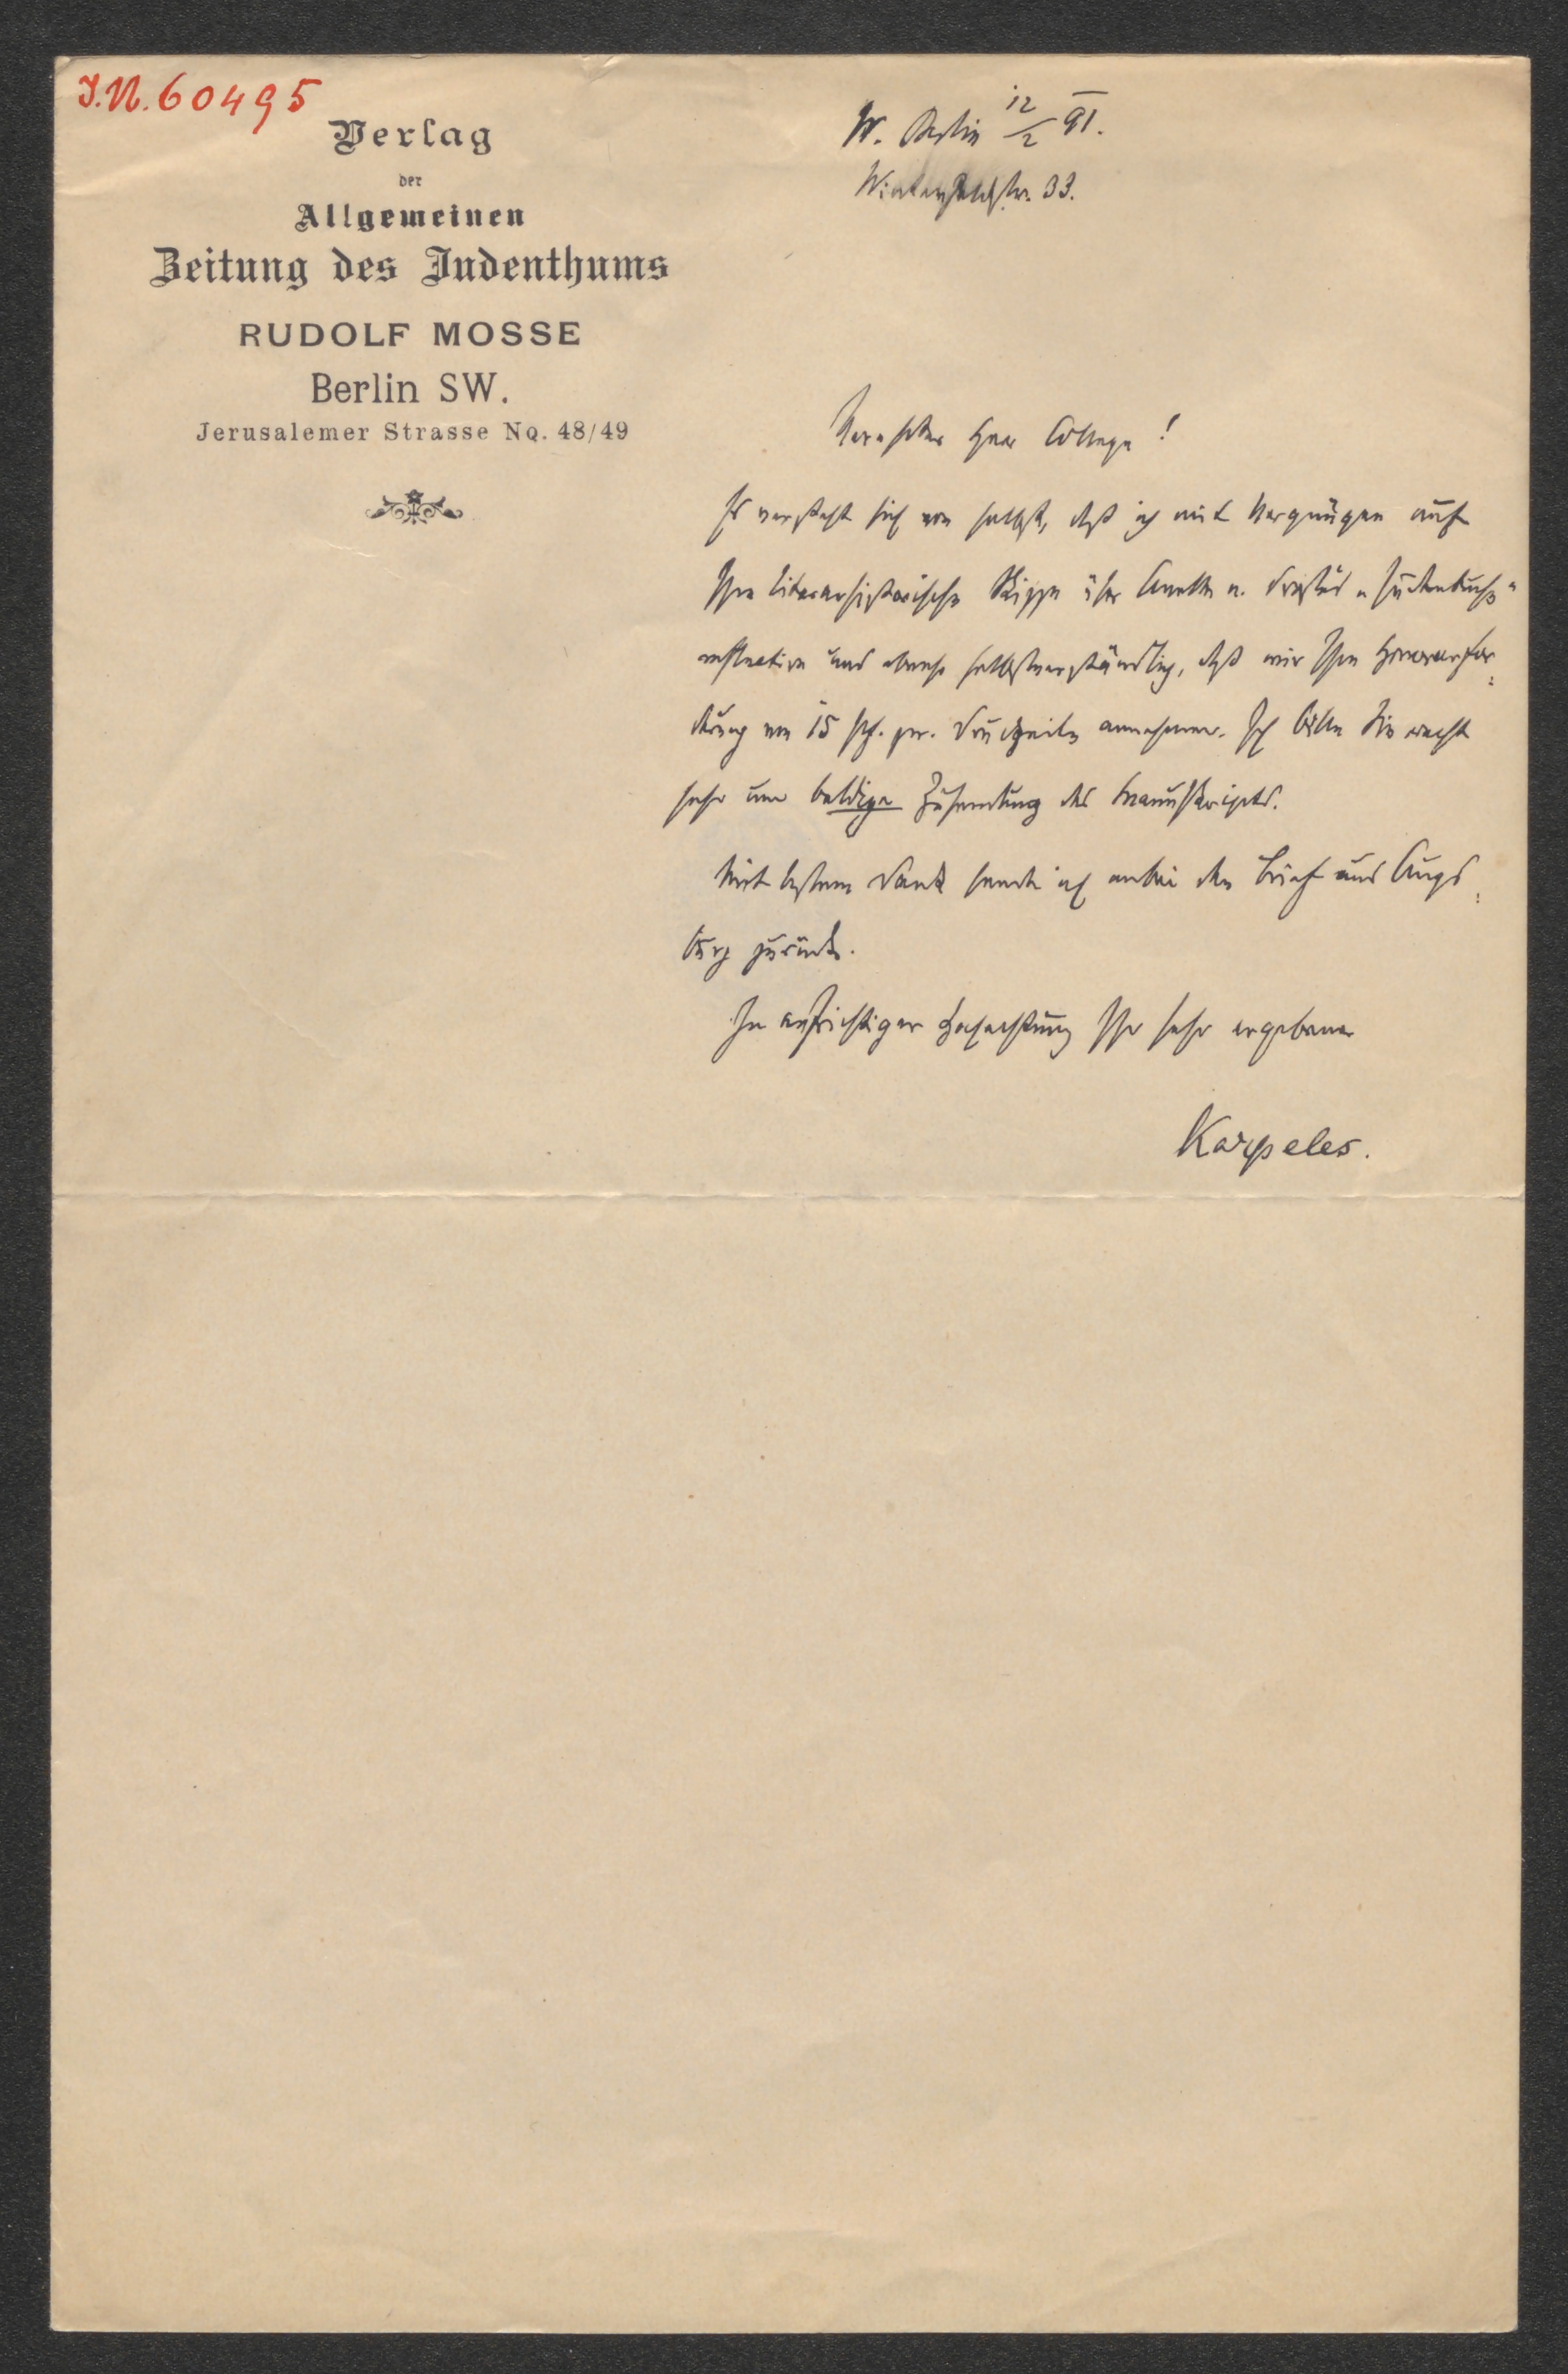 J.N. 60495
Verlag
der
Allgemeinen
Zeitung des Judenthums
RUDOLF MOSSE
Berlin SW.
Jerusalemer Strasse No. 48/49
W. Berlin 12/2 91.
Winterfeldtstr. 33.
Verehrter Herr College!
Es versteht sich von selbst, daß ich mit Vergnügen auf
Ihre literarhistorische Skizze über Annette v. Droste's „Judenbuche"
reflectire und ebenso selbstverständlich, daß wir Ihre Honorarfor-
derung von 15 Pf. pr. Druckzeile annehmen. Ich bitte Sie recht
sehr um baldige Zusendung des Manuskripts.
Mit bestem Dank sende ich anbei den Brief aus Augs-
burg zurück.
In aufrichtiger Hochachtung Ihr sehr ergebener
Karpeles.